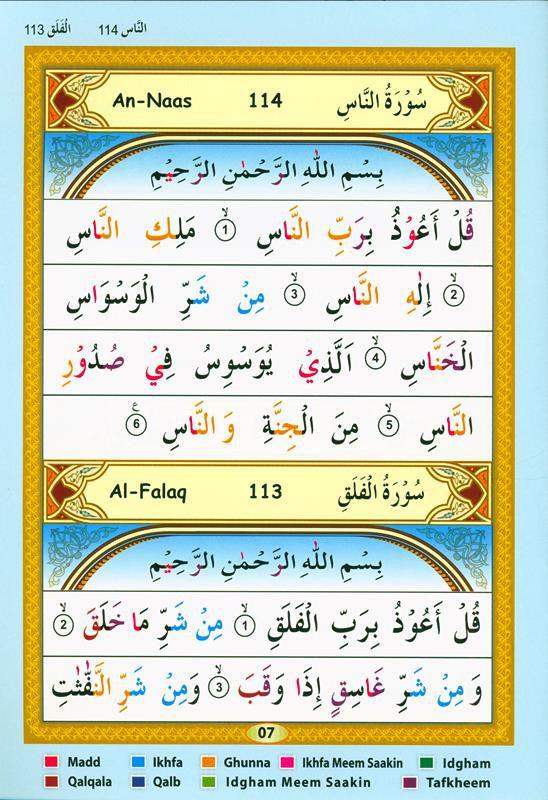 النَّاس 114 الْفَلَق 113
An-Naas 114 سُوْرَةُ النَّاسِ
بِسْمِ اللّٰهِ الرَّحْمٰنِ الرَّحِيْمِ
قُلْ اَعُوْذُ بِرَبِّ النَّاسِ ۙ1 مَلِكِ النَّاسِ
ۙ2 اِلٰهِ النَّاسِ ۙ3 مِنْ شَرِّ الْوَسْوَاسِ
الْخَنَّاسِ ۙ4 الَّذِيْ يُوَسْوِسُ فِيْ صُدُوْرِ
النَّاسِ ۙ5 مِنَ الْجِنَّةِ وَ النَّاسِ ۧ6
Al-Falaq 113 سُوْرَةُ الْفَلَقِ
بِسْمِ اللّٰهِ الرَّحْمٰنِ الرَّحِيْمِ
قُلْ اَعُوْذُ بِرَبِّ الْفَلَقِ ۙ1 مِنْ شَرِّ مَا خَلَقَ ۙ2
وَ مِنْ شَرِّ غَاسِقٍ اِذَا وَقَبَ ۙ3 وَمِنْ شَرِّ النَّفّٰثٰتِ
07
Madd Ikhfa Ghunna Ikhfa Meem Saakin Idgham
Qalqala Qalb Idgham Meem Saakin Tafkheem